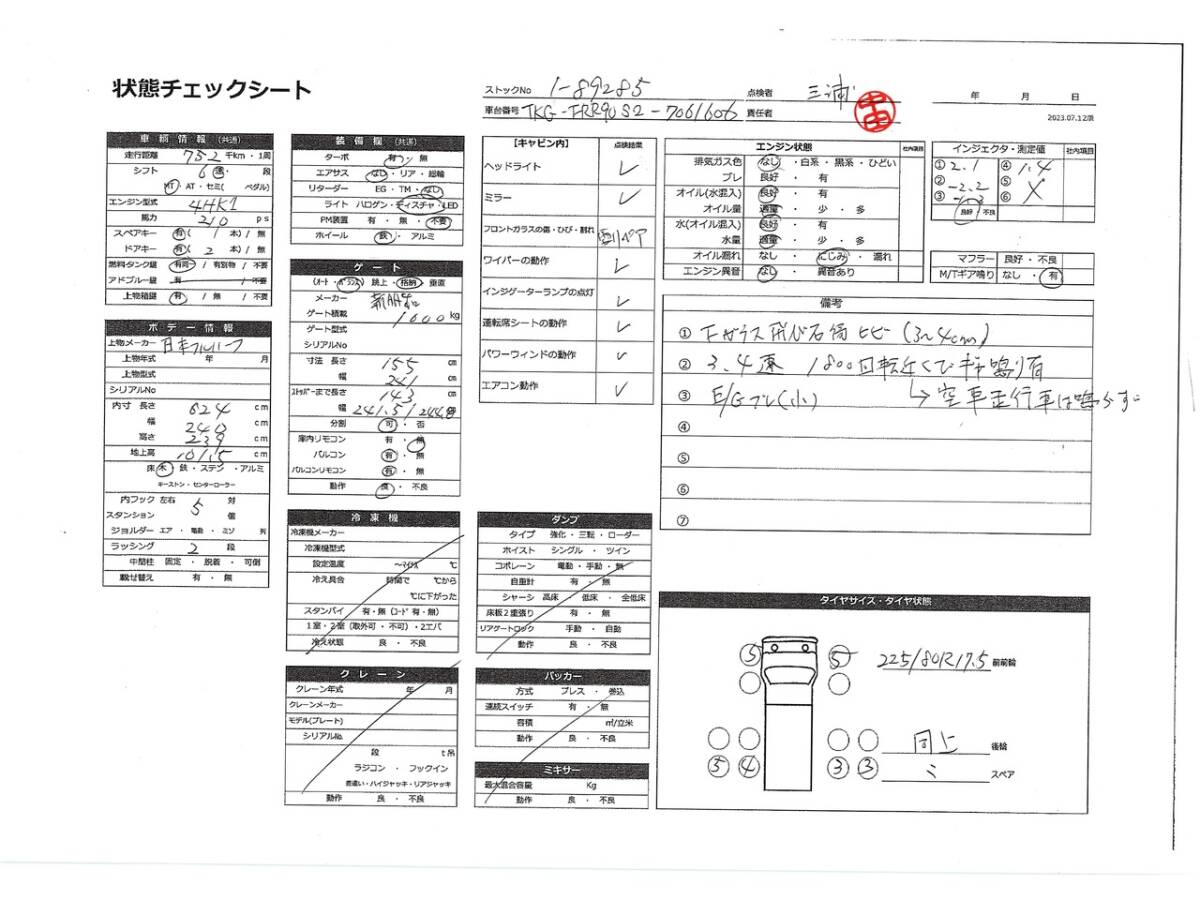 状態チェックシート
ストックNo 1-89285 点検者 三浦 年 月 日
車台番号 TKG-FRR90S2-7061606 責任者
2023.07.12版
車輌情報 (共通)
走行距離 752 千km・1周
シフト 6 速・ 段
MT・AT・セミ( ペダル)
エンジン型式 4HK1
馬力 210 ps
スペアキー 有( 1 本) / 無
ドアキー 有( 2 本) / 無
燃料タンク鍵 有同一 / 有別物 / 不要
アドブルー鍵 有 / 無 / 不要
上物箱鍵 有 / 無 / 不要
ボデー情報
上物メーカー 日本フルハーフ
上物年式 年 月
上物型式
シリアルNo
内寸 長さ 624 cm
幅 240 cm
高さ 239 cm
地上高 101.5 cm
床 木・鉄・ステン・アルミ
キーストン・センターローラー
内フック 左右 5 対
スタンション 個
ジョルダー エア・電動・ミゾ 列
ラッシング 2 段
中間柱 固定・脱着・可倒
載せ替え 有・無
装備欄 (共通)
ターボ 有・無
エアサス なし・リア・総輪
リターダー EG・TM・なし
ライト ハロゲン・ディスチャ・LED
PM装置 有・無・不要
ホイール 鉄・アルミ
ゲート
跳上・格納・垂直
メーカー 新明和
ゲート積載 1600 kg
ゲート型式
シリアルNo
寸法 長さ 155 cm
幅 241 cm
ストッパーまで長さ 143 cm
幅 241.5/244.8 cm
分割 可・否
庫内リモコン 有・無
バルコン 有・無
バルコンリモコン 有・無
動作 良・不良
冷凍機
冷凍機メーカー
冷凍機型式
設定温度 ～マイナス ℃
冷え具合 時間で ℃から
℃に下がった
スタンバイ 有・無 (コード 有・無)
1室・2室 (取外可・不可)・2エバ
冷え状態 良・不良
クレーン
クレーン年式 年 月
クレーンメーカー
モデル(プレート)
シリアルNo.
段 t吊
ラジコン・フックイン
差違い・ハイジャッキ・リアジャッキ
動作 良・不良
【キャビン内】 点検結果
ヘッドライト ✓
ミラー ✓
フロントガラスの傷・ひび・割れ
ワイパーの動作 ✓
インジゲーターランプの点灯 ✓
運転席シートの動作 ✓
パワーウィンドの動作 ✓
エアコン動作 ✓
ダンプ
タイプ 強化・三転・ローダー
ホイスト シングル・ツイン
コボレーン 電動・手動・無
自重計 有・無
シャーシ 高床・低床・全低床
床板2重張り 有・無
リアゲートロック 手動・自動
動作 良・不良
パッカー
方式 プレス・巻込
連続スイッチ 有・無
容積 ㎥/立米
動作 良・不良
ミキサー
最大混合容量 Kg
動作 良・不良
エンジン状態 社内項目
排気ガス色 なし・白系・黒系・ひどい
ブレ 良好・有
オイル(水混入) 良好・有
オイル量 適量・少・多
水(オイル混入) 良好・有
水量 適量・少・多
オイル漏れ なし・にじみ・漏れ
エンジン異音 なし・異音あり
インジェクタ・測定値 社内項目
① 2.1 ④ 1.4
② -2.2 ⑤ X
③ ⑥
良好・不良
マフラー 良好・不良
M/Tギア鳴り なし・有
備考
① Fガラス飛び石傷 ヒビ (3~4cm)
② 3.4速 1800回転近くでギヤ鳴り有
③ E/Gブレ(小) ↳空車走行車は鳴らず
④
⑤
⑥
⑦
タイヤサイズ・タイヤ状態
5 5 225/80R17.5 前前輪
同上 後輪
5 4 3 3 ミ スペア